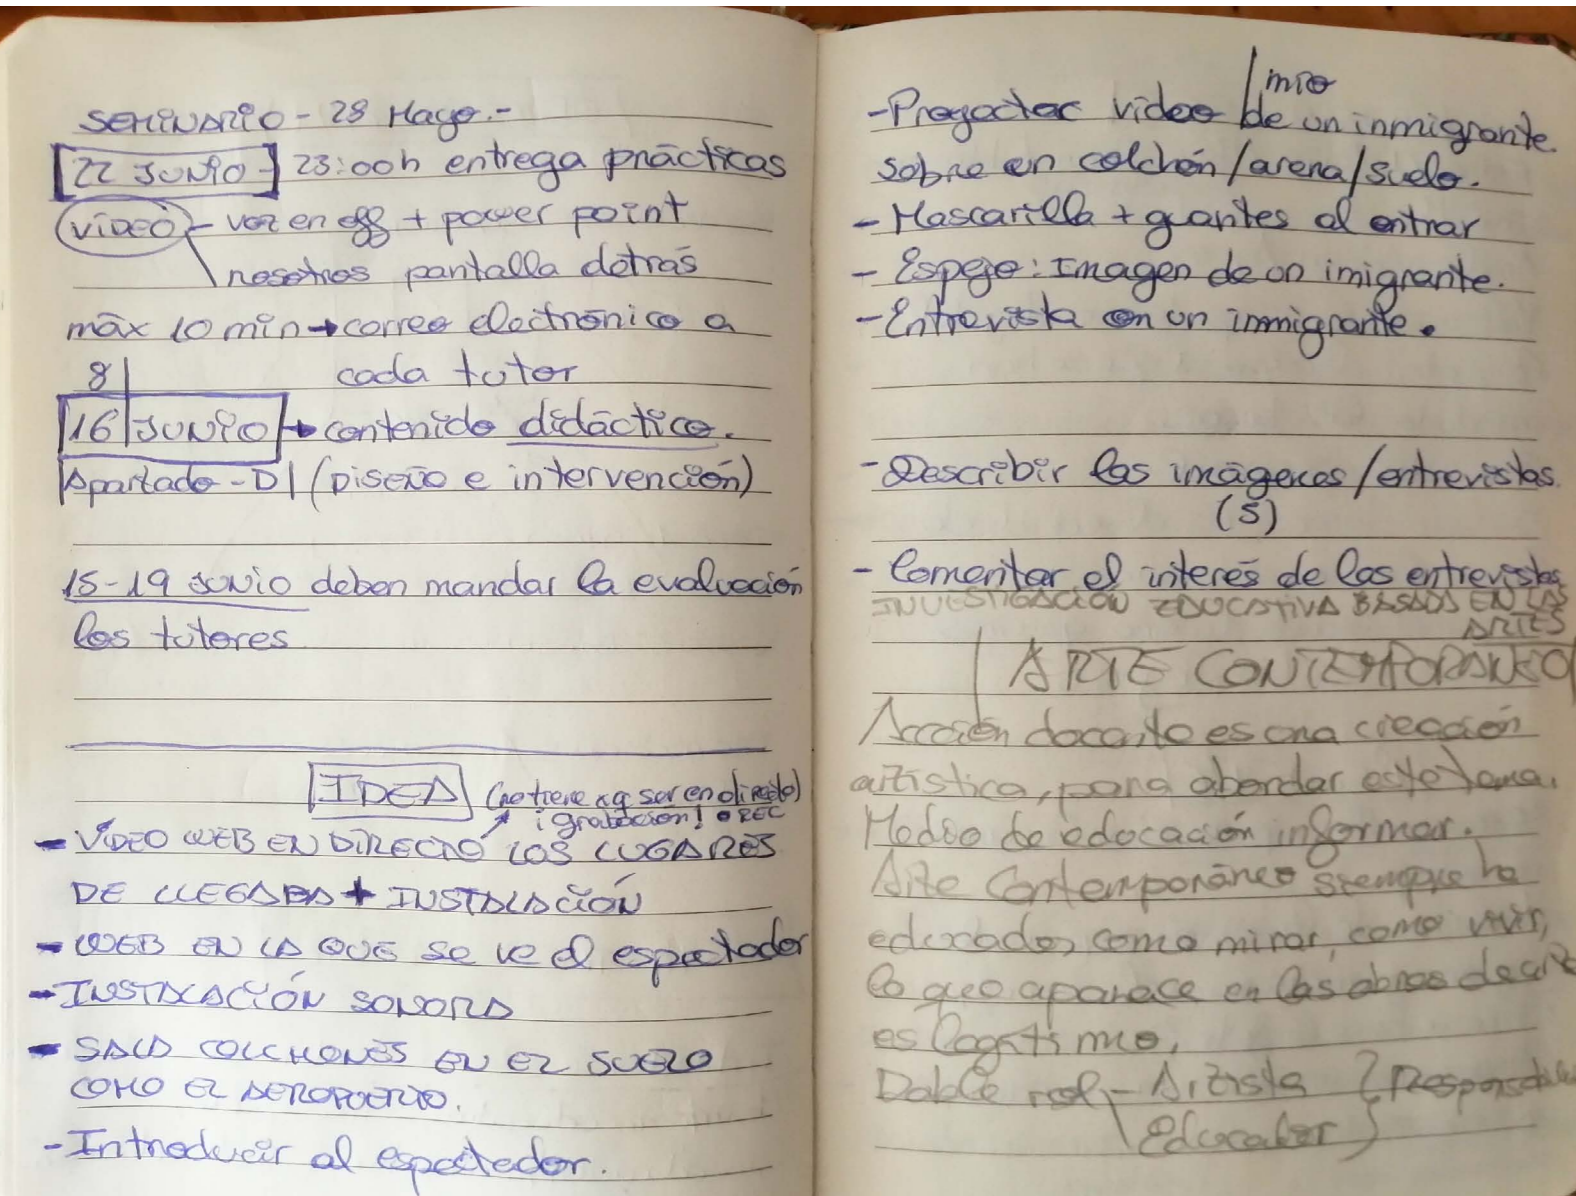 SEMINARIO - 28 Mayo.-
22 JUNIO - 23:00h entrega prácticas
VIDEO - voz en off + power point
nosotros pantalla detrás
máx 10 min → correo electrónico a
8 cada tutor
16 JUNIO → contenido didáctico.
Apartado - D| (Diseño e intervención)
15-19 JUNIO deben mandar la evaluación
los tutores
IDEA (no tiene xq ser en directo)
¡grabación! • REC
- VÍDEO WEB EN DIRECTO LOS LUGARES
DE LLEGADA + INSTALACIÓN
- WEB EN LA QUE se ve el espectador
- INSTALACIÓN SONORA
- SALA COLCHONES EN EL SUELO
COMO EL AEROPUERTO.
- Introducir al espectador.
mío
- Proyectar video de un inmigrante
sobre un colchón/arena/suelo.
- Mascarilla + guantes al entrar
- Espejo: Imagen de un imigrante.
- Entrevista con un immigrante.
- Describir las imágenes/entrevistas.
(5)
- Comentar el interés de las entrevistas
INVESTIGACIÓN EDUCATIVA BASADA EN LAS
ARTES
ARTE CONTEMPORÁNEO
Acción docente es una creación
artística, para abordar este tema.
Medio de educación informar.
Arte Contemporáneo siempre ha
educado, como mirar, como vivir,
lo que aparece en las obras de arte
es legítimo,
Doble rol - Artista
Educador